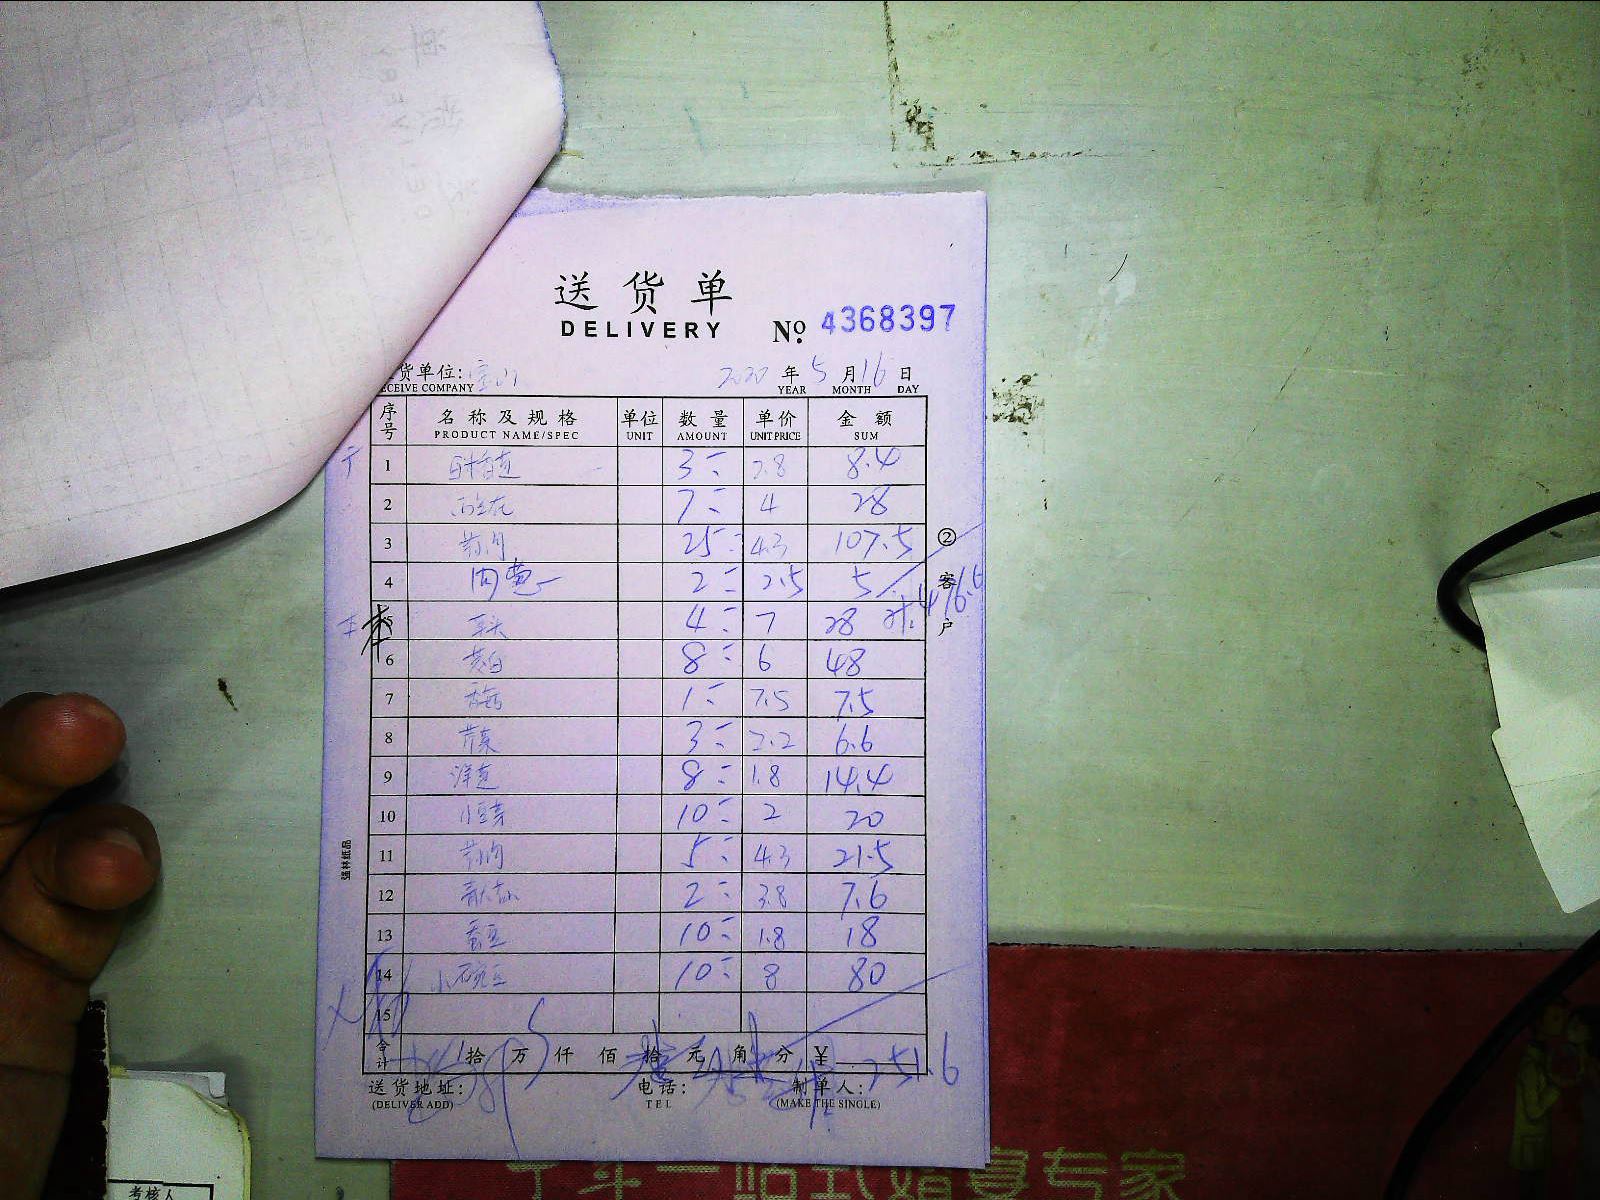 送货单
DELIVERY
№ 4368397
货单位:
ECEIVE COMPANY
2020 年 5 月 16 日
YEAR MONTH DAY
序号 名称及规格 单位 数量 单价 金额
PRODUCT NAME/SPEC UNIT AMOUNT UNIT PRICE SUM
1 3 2.8 8.4
2 西兰花 7 4 28
3 25 4.3 107.5
4 肉葱 2 2.5 5
5 4 7 28
6 8 6 48
7 1 7.5 7.5
8 芹菜 3 2.2 6.6
9 洋葱 8 1.8 14.4
10 小豆芽 10 2 20
11 5 4.3 21.5
12 2 3.8 7.6
13 蚕豆 10 1.8 18
14 小碗豆 10 8 80
15
416.6
合计 拾 万 仟 佰 拾 元 角 分 ¥ 251.6
送货地址: 电话: 制单人:
(DELIVER ADD) TEL (MAKE THE SINGLE)
② 客户
强林纸品
考核人
一站式婚宴专家